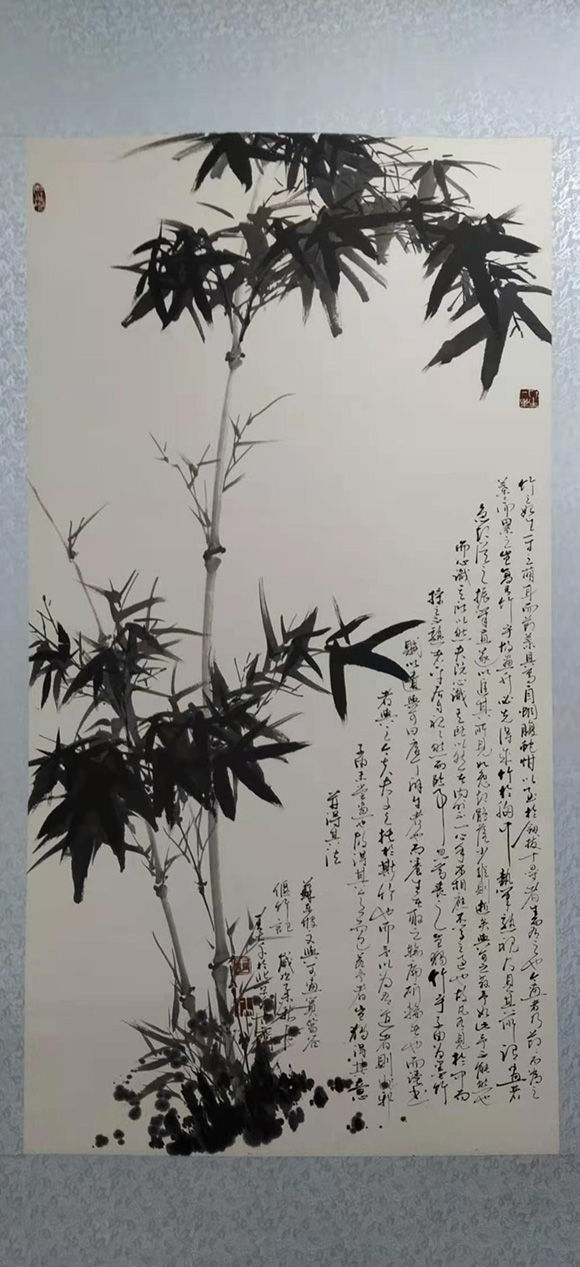 竹之始生一寸之萌耳而節葉具焉自蜩腹蛇蚹以至於劍拔十尋者生而有之也今畫者乃節而為之
葉而累之豈復有竹乎故畫竹必先得成竹於胸中執筆熟視乃見其所欲畫者
急起從之振筆直遂以追其所見如兔起鶻落少縱則逝矣與可之教予如此予不能然也
而心識其所以然夫既心識其所以然內外不一心手不相應不學之過也故凡有見於中而
操之不熟者平居自視了然而臨事忽焉喪之豈獨竹乎子由為墨竹
賦以遺與可曰庖丁解牛者也而養生者取之輪扁斫輪者也而讀書
者與之今夫夫子之托於斯竹也而予以為有道者則非邪
子由未嘗畫也故得其意而已若予者豈獨得其意
并得其法
蘇東坡文與可畫篔簹谷
偃竹記 歲次